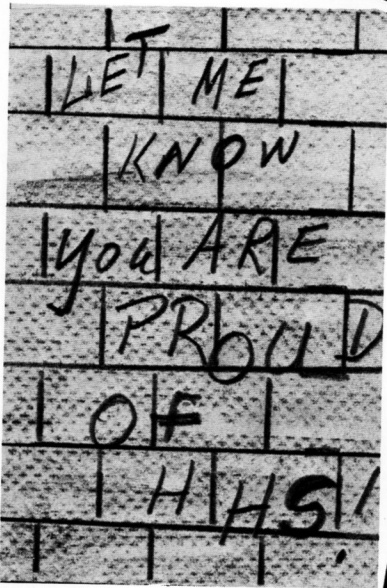 LET ME
KNOW
you ARE
PROUD
OF
HHS!